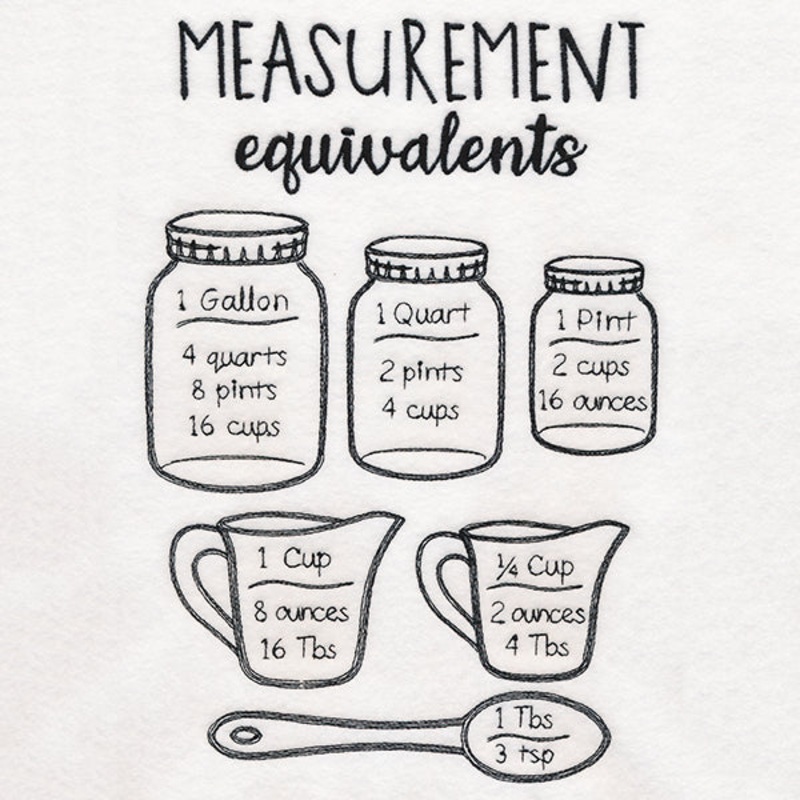 MEASUREMENT
equivalents
1 Gallon
4 quarts
8 pints
16 cups
1 Quart
2 pints
4 cups
1 Pint
2 cups
16 ounces
1 Cup
8 ounces
16 Tbs
¼ Cup
2 ounces
4 Tbs
1 Tbs
3 tsp